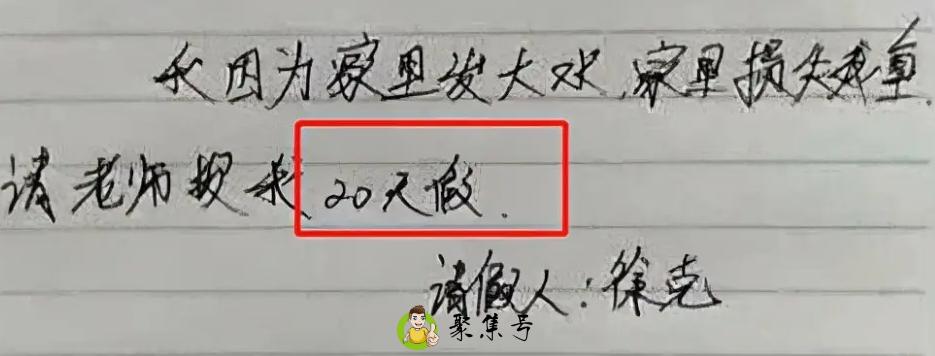 我因为家里发大水,家里损失我重.
请老师授我20天假.
请假人:徐克
聚集号